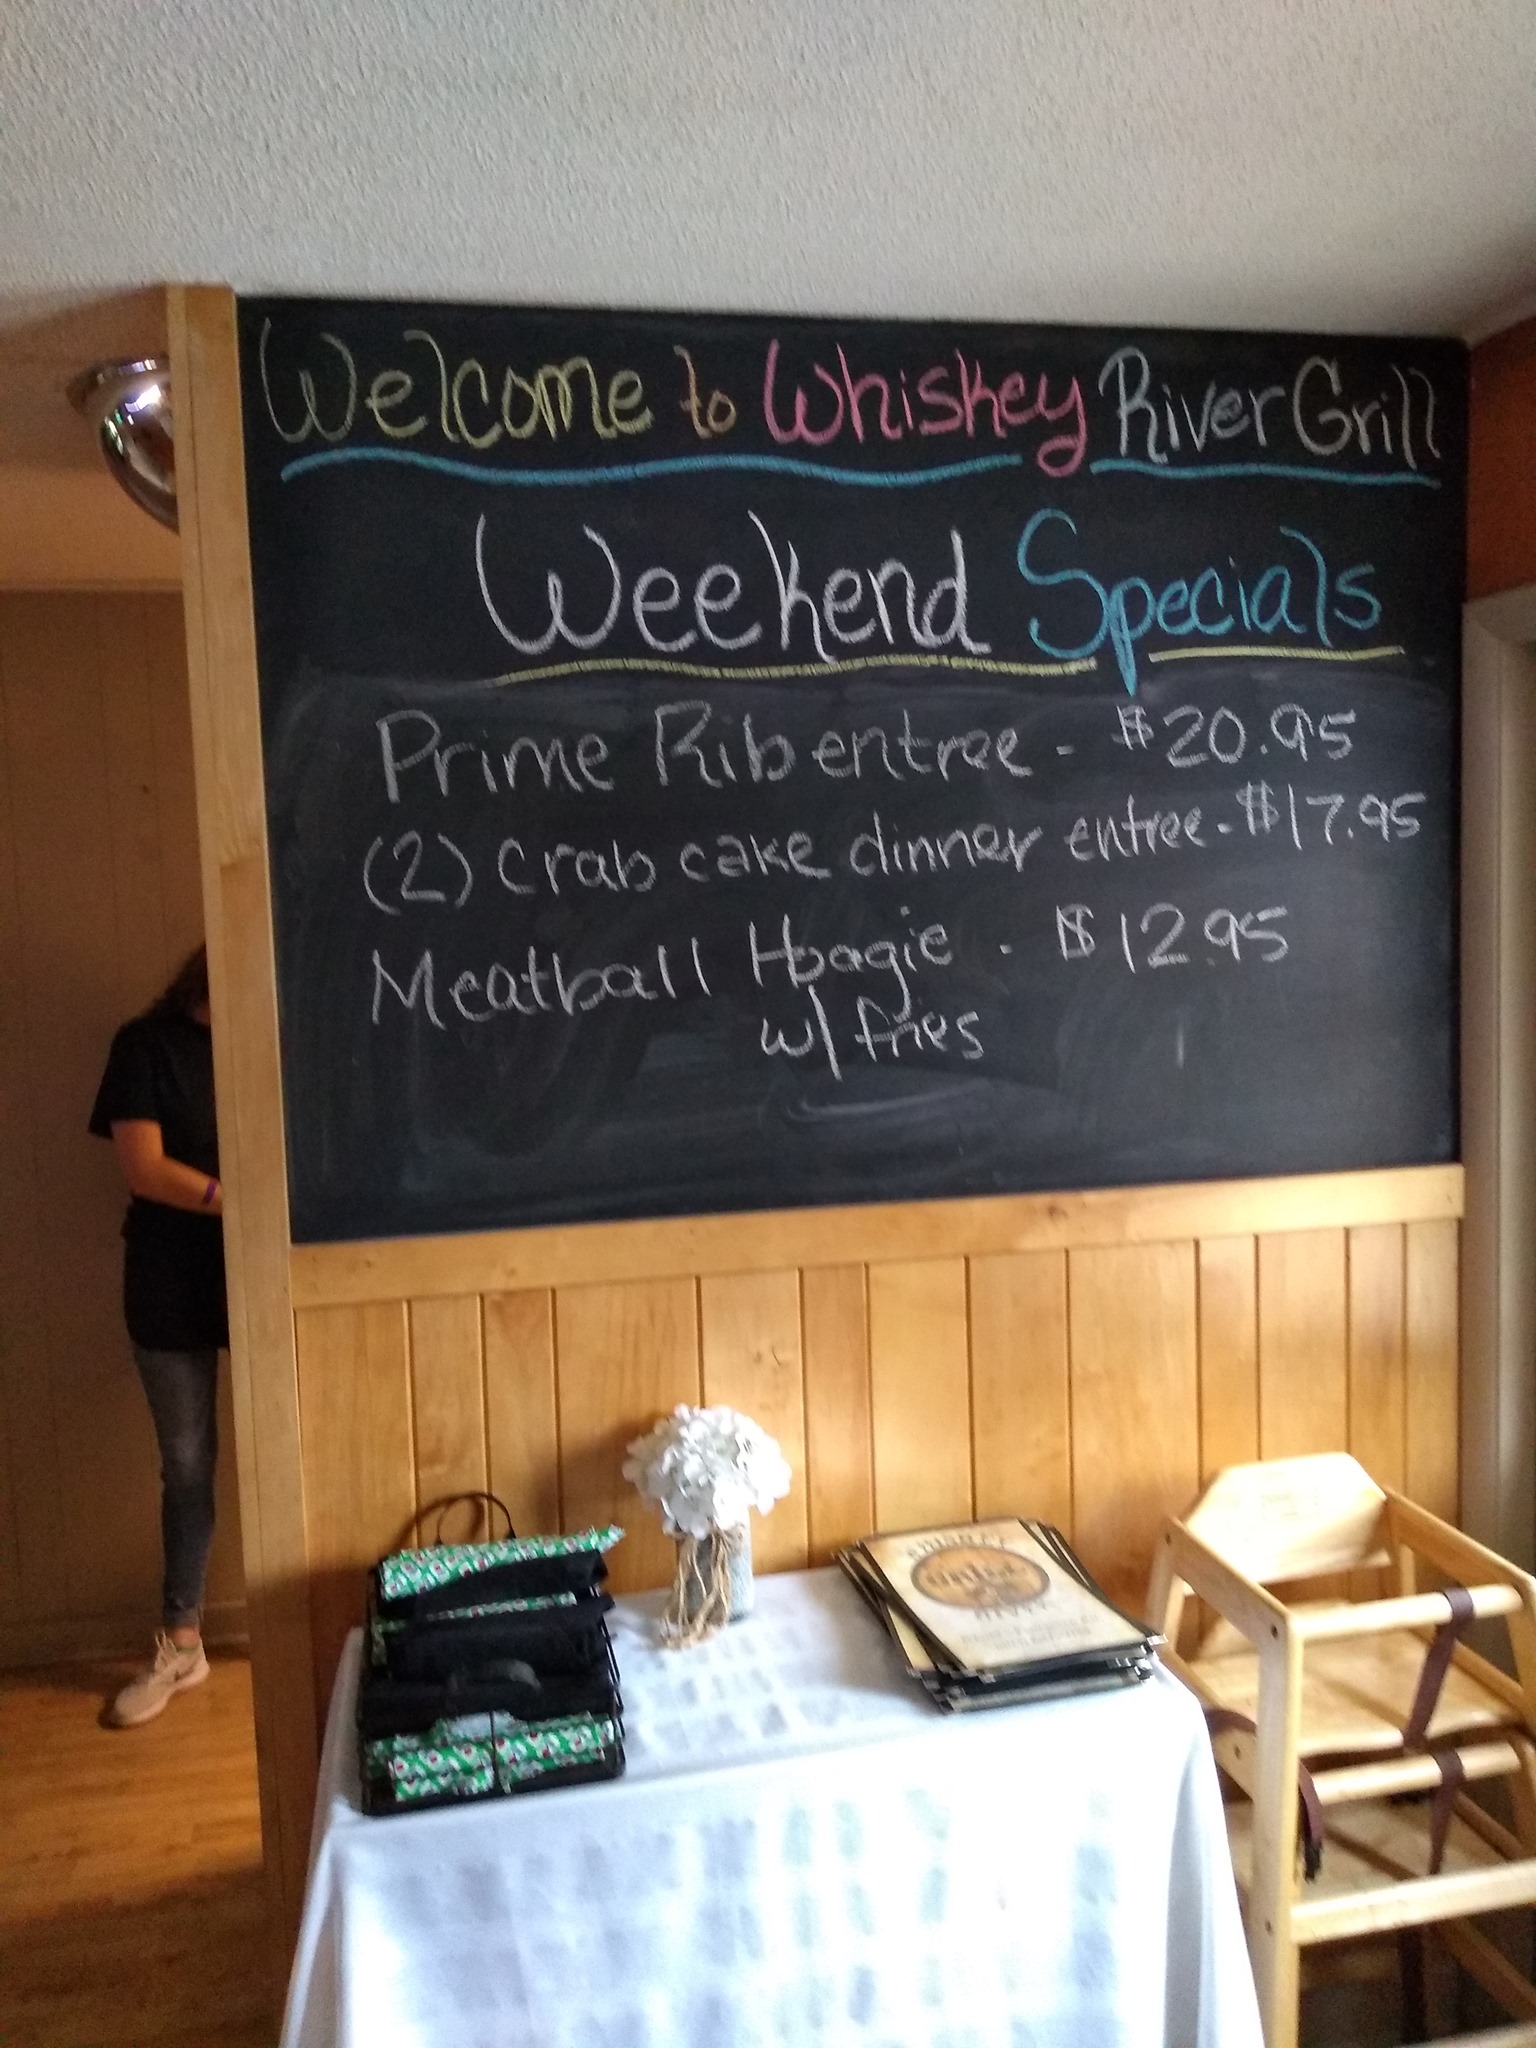 Welcome to Whiskey River Grill
Weekend Specials
Prime Rib entree - $20.95
(2) Crab cake dinner entree - $17.95
Meatball Hoagie - $12.95
w/ fries